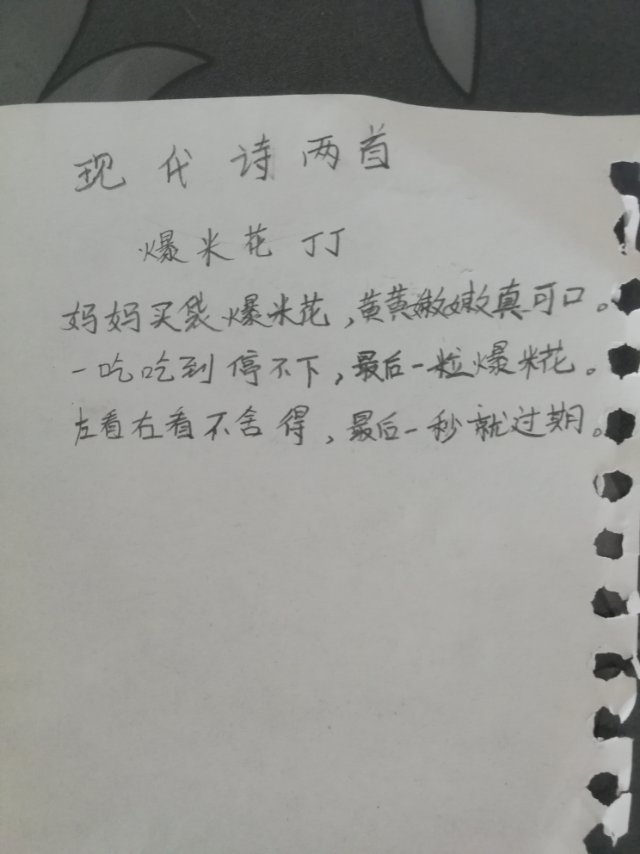 现代诗两首
爆米花 丁丁
妈妈买袋爆米花,黄黄嫩嫩真可口。
一吃吃到停不下,最后一粒爆米花。
左看右看不舍得,最后一秒就过期。